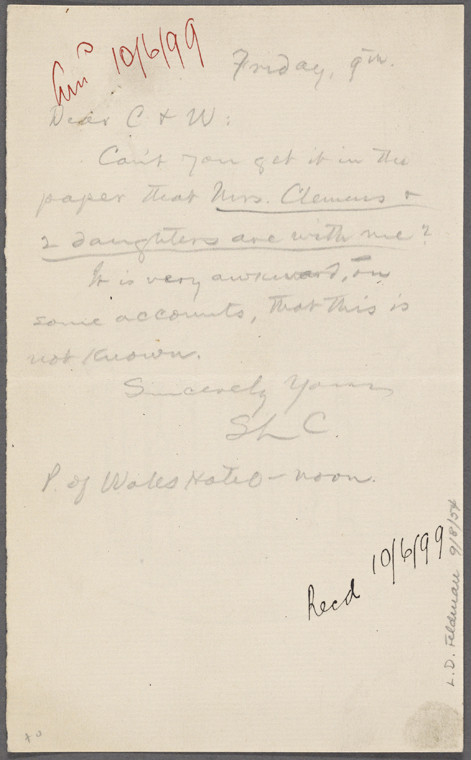 Ansd 10/6/99
Friday, 9th.
Dear C & W:
Can't you get it in the
paper that Mrs. Clemens &
2 daughters are with me?
It is very awkward, on
some accounts, that this is
not known.
Sincerely Yours
SLC.
P. of Wales Hotel – noon.
Recd 10/6/99
L.D. Feldman 9/8/54